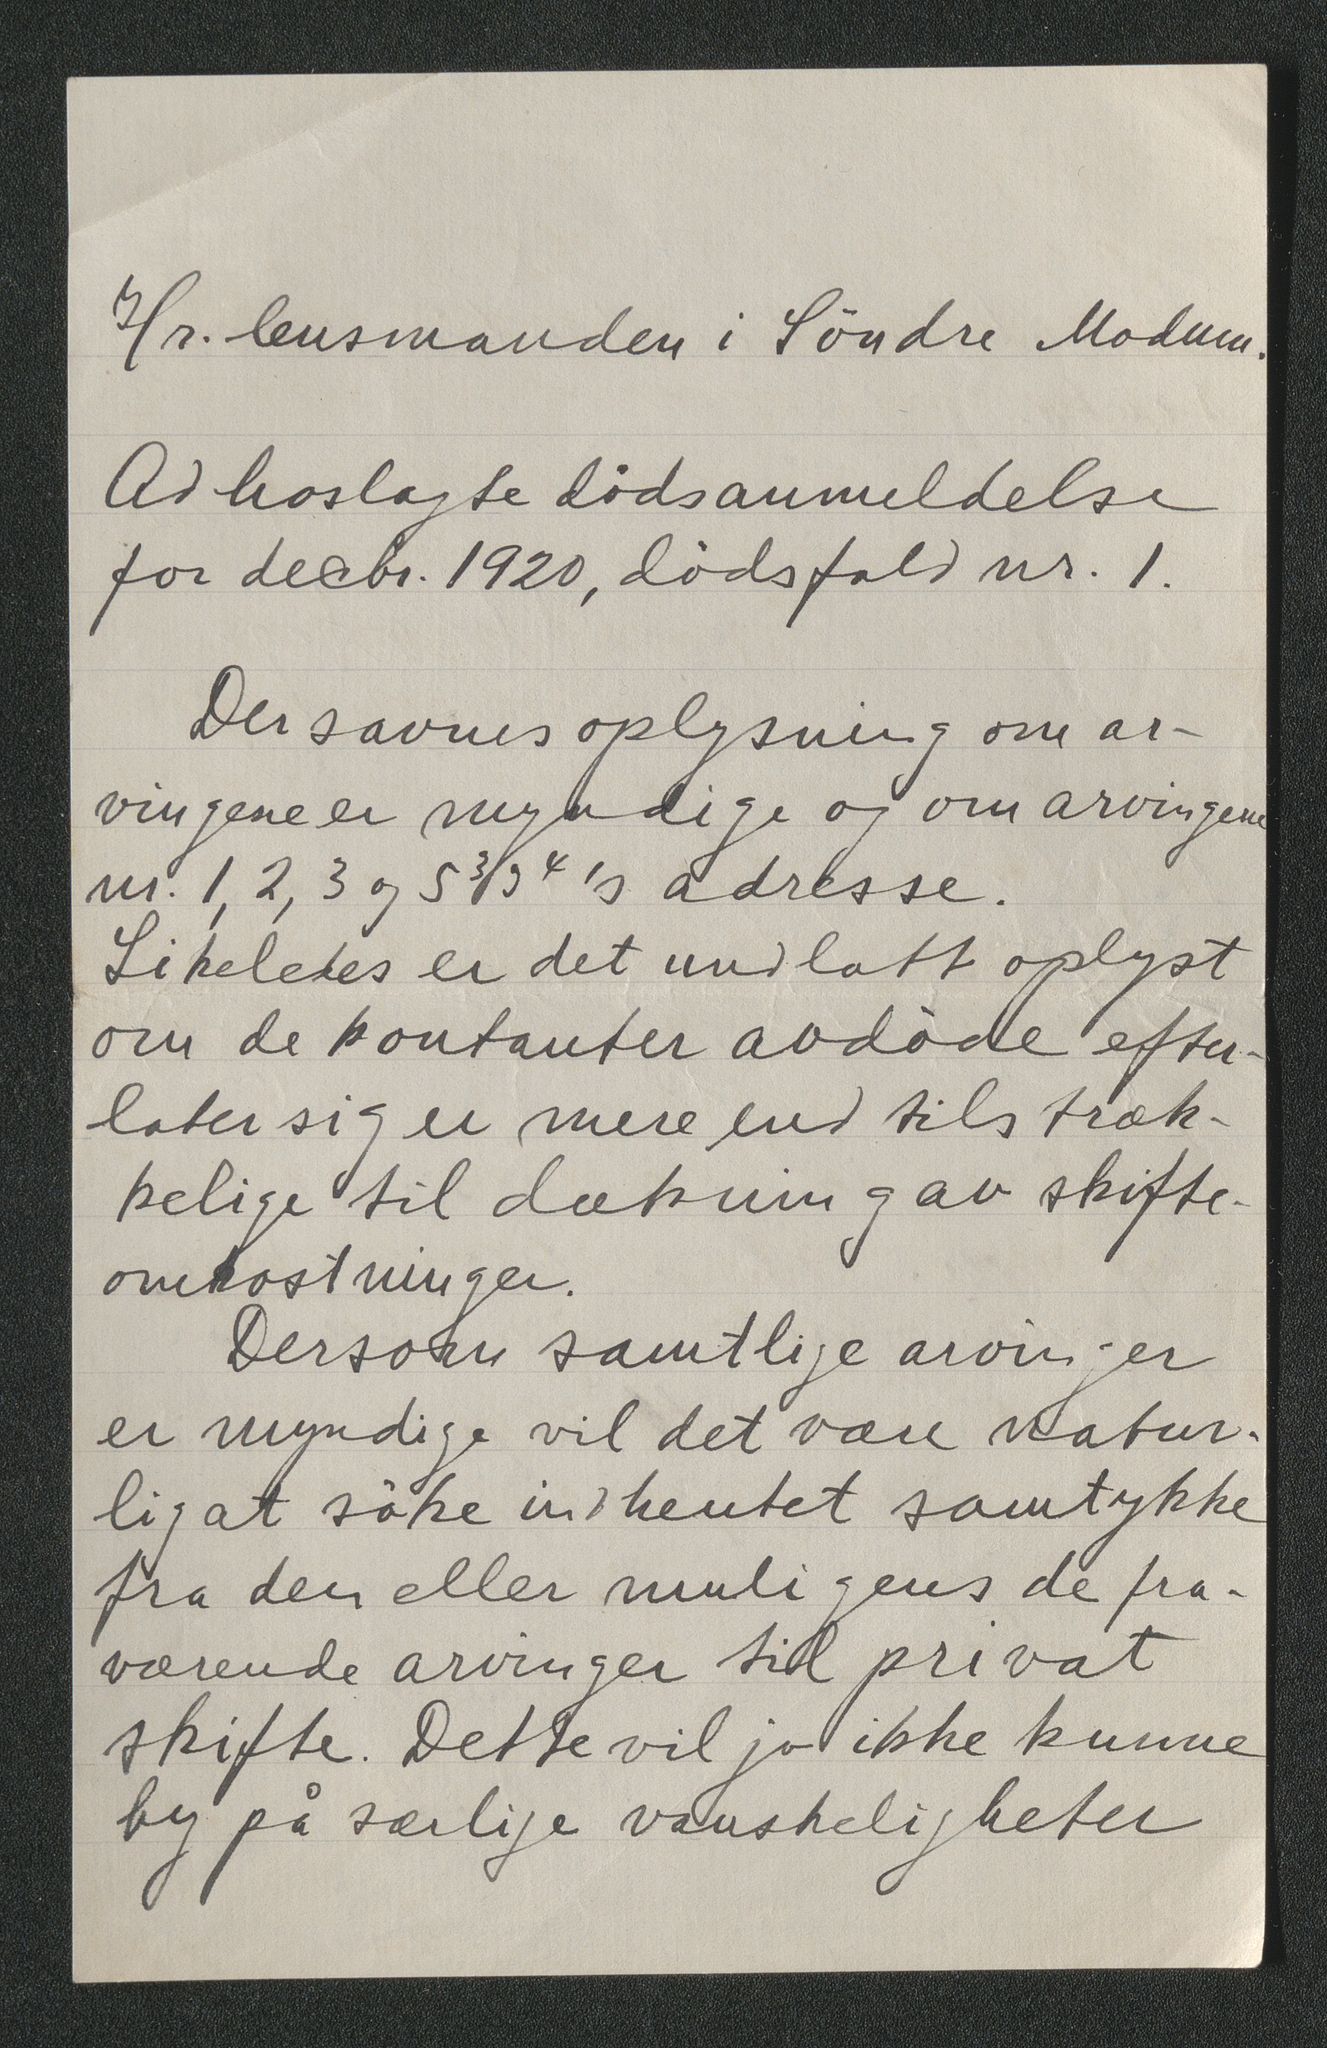 Hr. lensmanden i Söndre Modum.
Ad hoslagte dödsanmeldelse
for decbr. 1920, dödsfald nr. 1.
Der savnes oplysning om ar-
vingene er myndige og om arvingene
nr. 1, 2, 3 og 5 's adresse.
Likeledes er det undlatt oplyst
om de kontanter avdöde efter-
later sig er mere end tilstræk-
kelige til dækning av skifte-
omkostninger.
Dersom samtlige arvinger
er myndige vil det være natur-
lig at söke indhentet samtykke
fra den eller muligens de fra-
værende arvinger til privat
skifte. Dette vil jo ikke kunne
by på særlige vanskeligheter